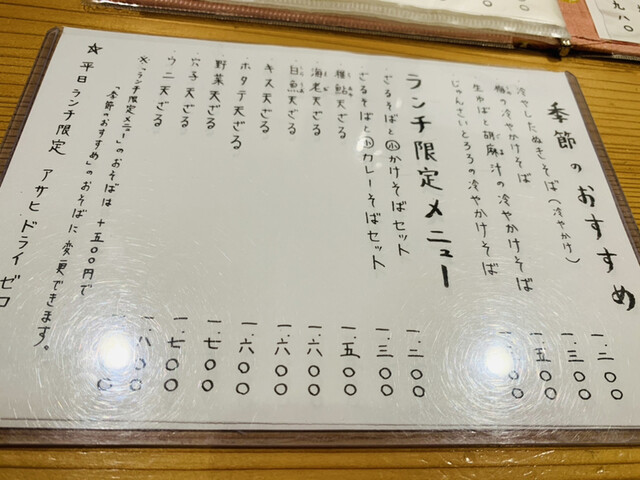 季節のおすすめ
冷やしたぬきそば(冷やかけ) 一、二〇〇
梅の冷やかけそば 一、三〇〇
生ゆばと胡麻汁の冷やかけそば 一、五〇〇
じゅんさいとろろの冷やかけそば
ランチ限定メニュー
ざるそばと㊙かけそばセット 一、二〇〇
ざるそばと小カレーそばセット 一、三〇〇
稚鮎天ざる 一、五〇〇
海老天ざる 一、六〇〇
白魚天ざる 一、六〇〇
キス天ざる 一、六〇〇
ホタテ天ざる 一、七〇〇
野菜天ざる 一、七〇〇
穴子天ざる 一、八〇〇
ウニ天ざる
※「ランチ限定メニュー」のおそばは +五〇〇円で
「季節のおすすめ」のおそばに変更できます。
☆ 平日ランチ限定 アサヒドライゼロ
九八〇